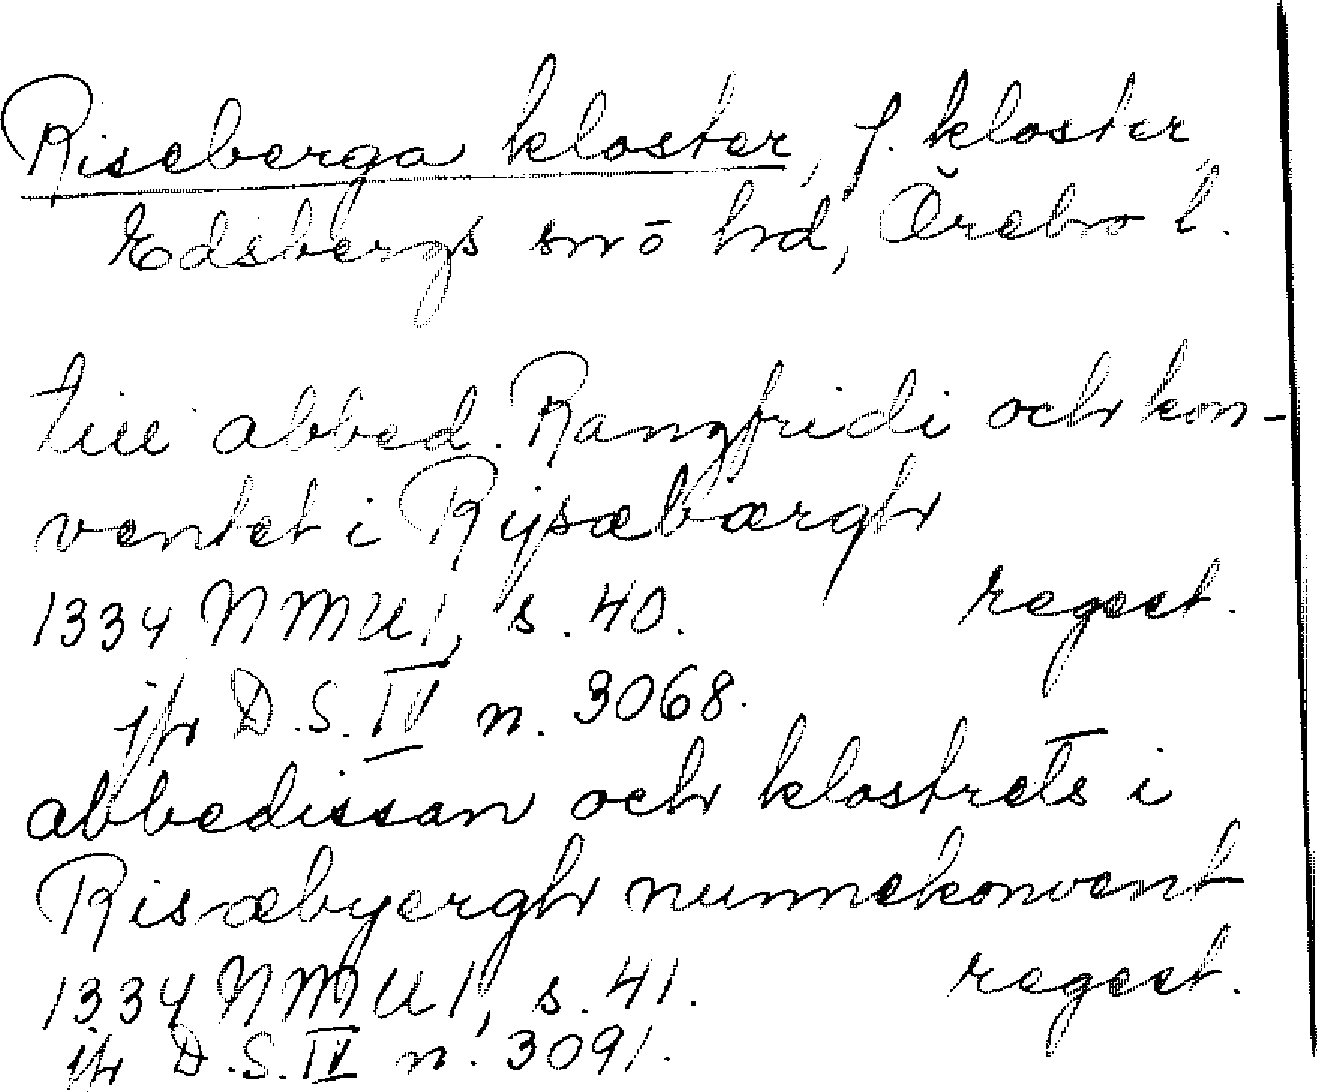 Riseberga kloster, f. kloster,
Edsbergs snö hd, Örebro l.
till abbed. Rangfridi och kon-
ventet i Rijsæbærgh
1334 NMU1, s. 40. regest.
jfr D.S. IV n. 3068.
abbedissan och klostrets i
Risæbyergh nunnekonvent
1334 NMU1, s. 41. regest.
jfr D.S. IV n. 3091.